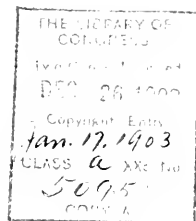 THE LIBRARY OF
CONGRESS
DEC 26
Copyright Entry
Jan. 17. 1903
CLASS a XXc No
5095
COPY A